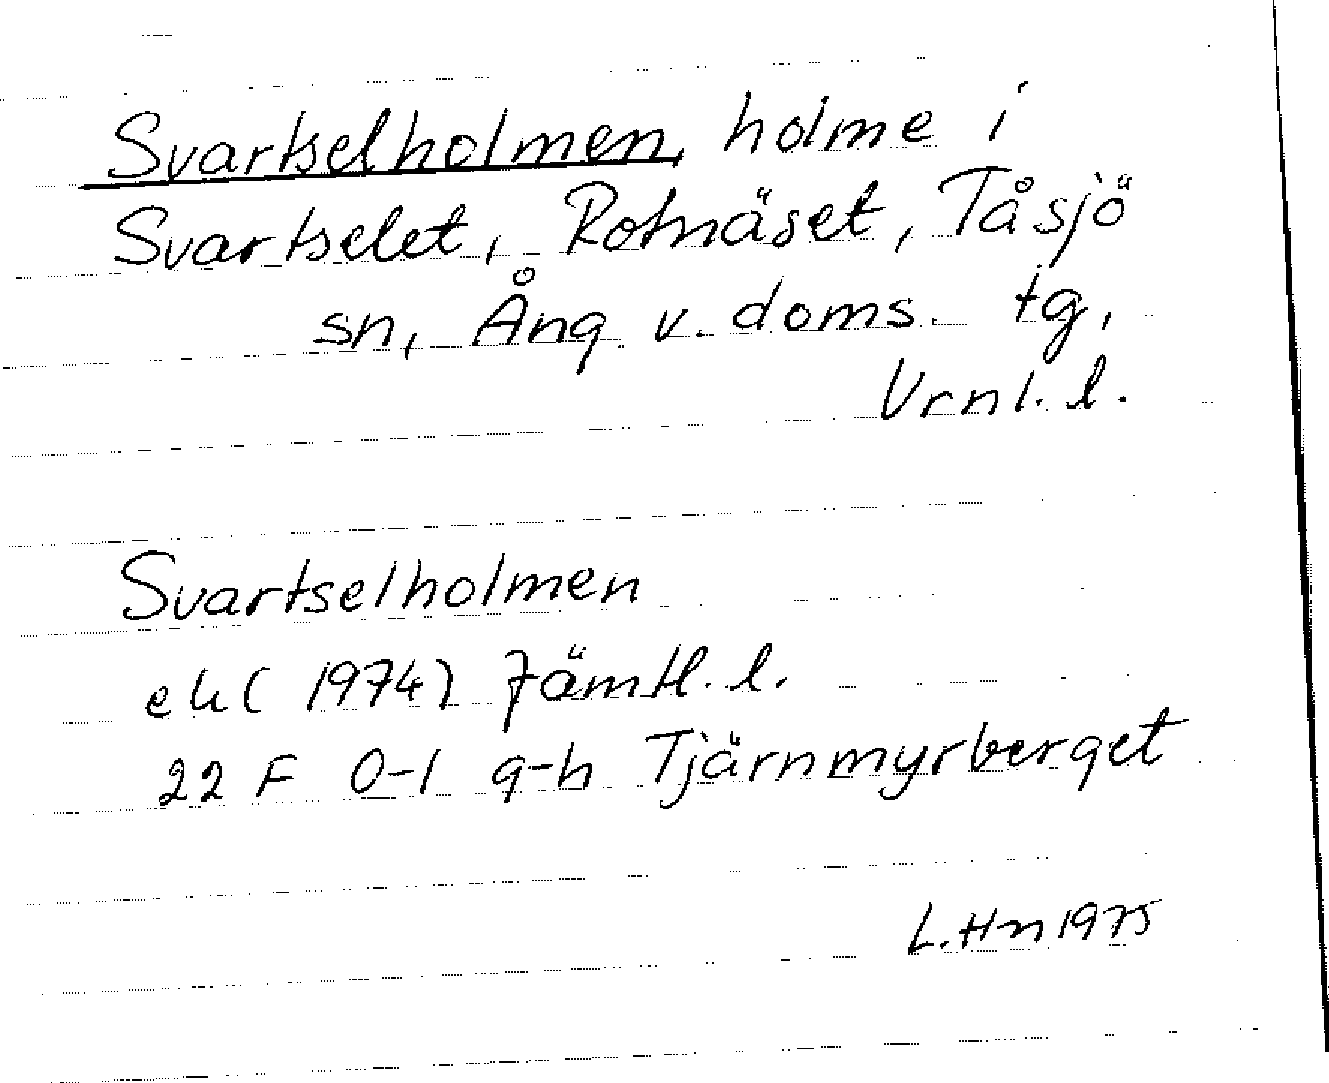 Svartselholmen, holme i
Svartselet, Rotnäset, Tåsjö
sn, Ång. v. doms. tg,
Vrnl. l.
Svartselholmen
ek (1974) Jämtl. l.
22 F 0-1 g-h Tjärnmyrberget
L. Hn 1975